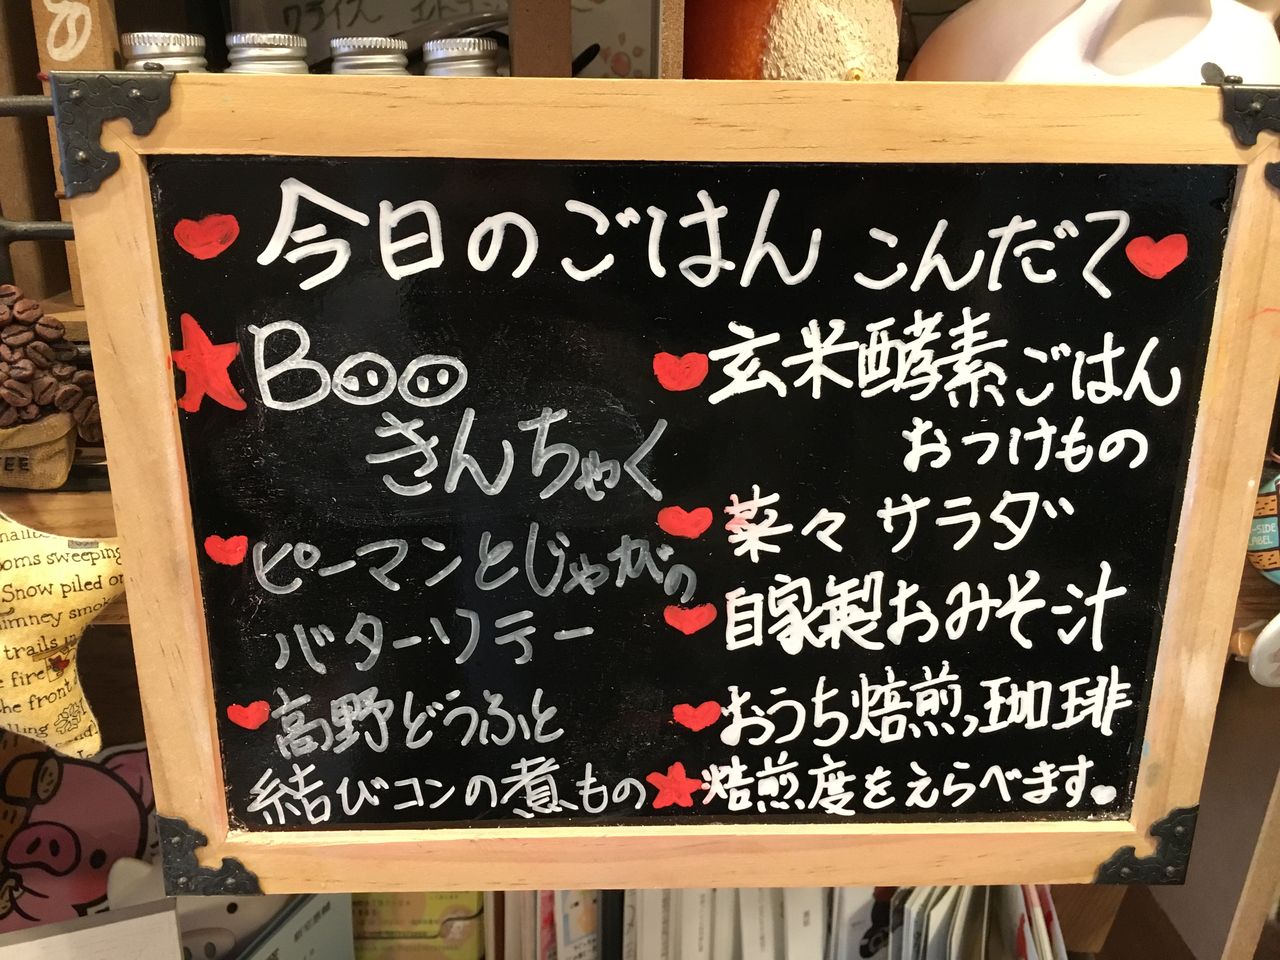 今日のごはん こんだて
Boo
きんちゃく
ピーマンとじゃがの
バターソテー
高野どうふと
結びコンの煮もの
玄米酵素ごはん
おつけもの
菜々サラダ
自家製おみそ汁
おうち焙煎珈琲
焙煎度をえらべます。
EE
ooms sweeping
Snow piled on
imney smok
trails in
e fire
the front
lling